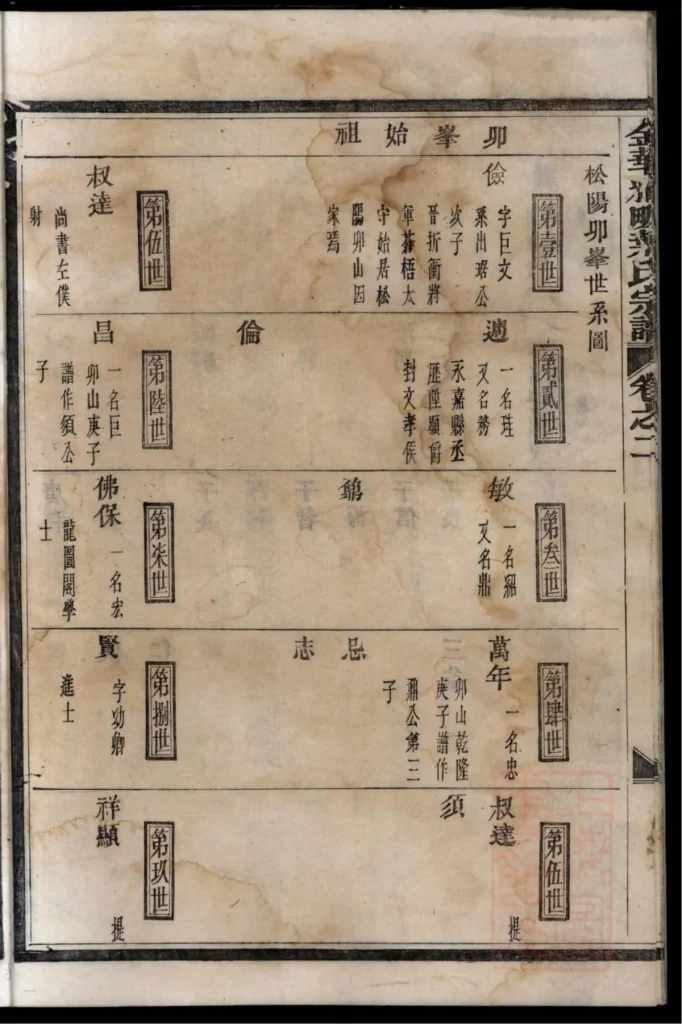 金華湖畈葉氏宗譜
卷之二
卯峯始祖
松陽卯峯世系圖
第壹世
儉
字巨文
系出琚公
次子
晉折衝將
軍蒼梧太
守始居松
陽卯山因
家焉
第貳世
遁
一名珪
又名務
永嘉縣丞
歷陞顯爵
封文孝侯
倫
第叁世
敏
一名紹
又名鼎
鵷
第肆世
萬年
一名忠
卯山乾隆
庚子譜作
鼐公第三
子
忌
志
第伍世
叔達
提
須
第伍世
叔達
尚書左僕
射
第陸世
昌
一名巨
卯山庚子
譜作須公
子
第柒世
佛保
一名宏
龍圖閣學
士
第捌世
賢
字幼卿
進士
第玖世
祥顯
提